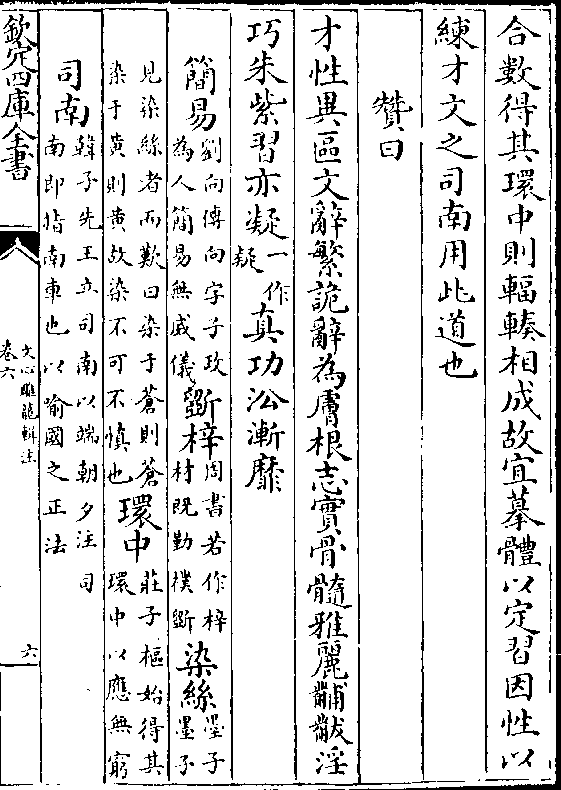 合數得其環中則輻輳相成故宜摹體以定習因性以
練才文之司南用此道也
贊曰
才性異區文辭繁詭辭為膚根志實骨髓雅麗黼黻淫
巧朱紫習亦凝一作疑真功沿漸靡
簡易劉向傳向字子政為人簡易無威儀斵梓周書若作梓材既勤樸斵染絲墨子墨子
見染絲者而歎曰染于蒼則蒼染于黃則黃故染不可不慎也環中莊子樞始得其環中以應無窮
司南韓子先王立司南以端朝夕注司南即指南車也以喻國之正法
欽定四庫全書
文心雕龍輯注
卷六
六